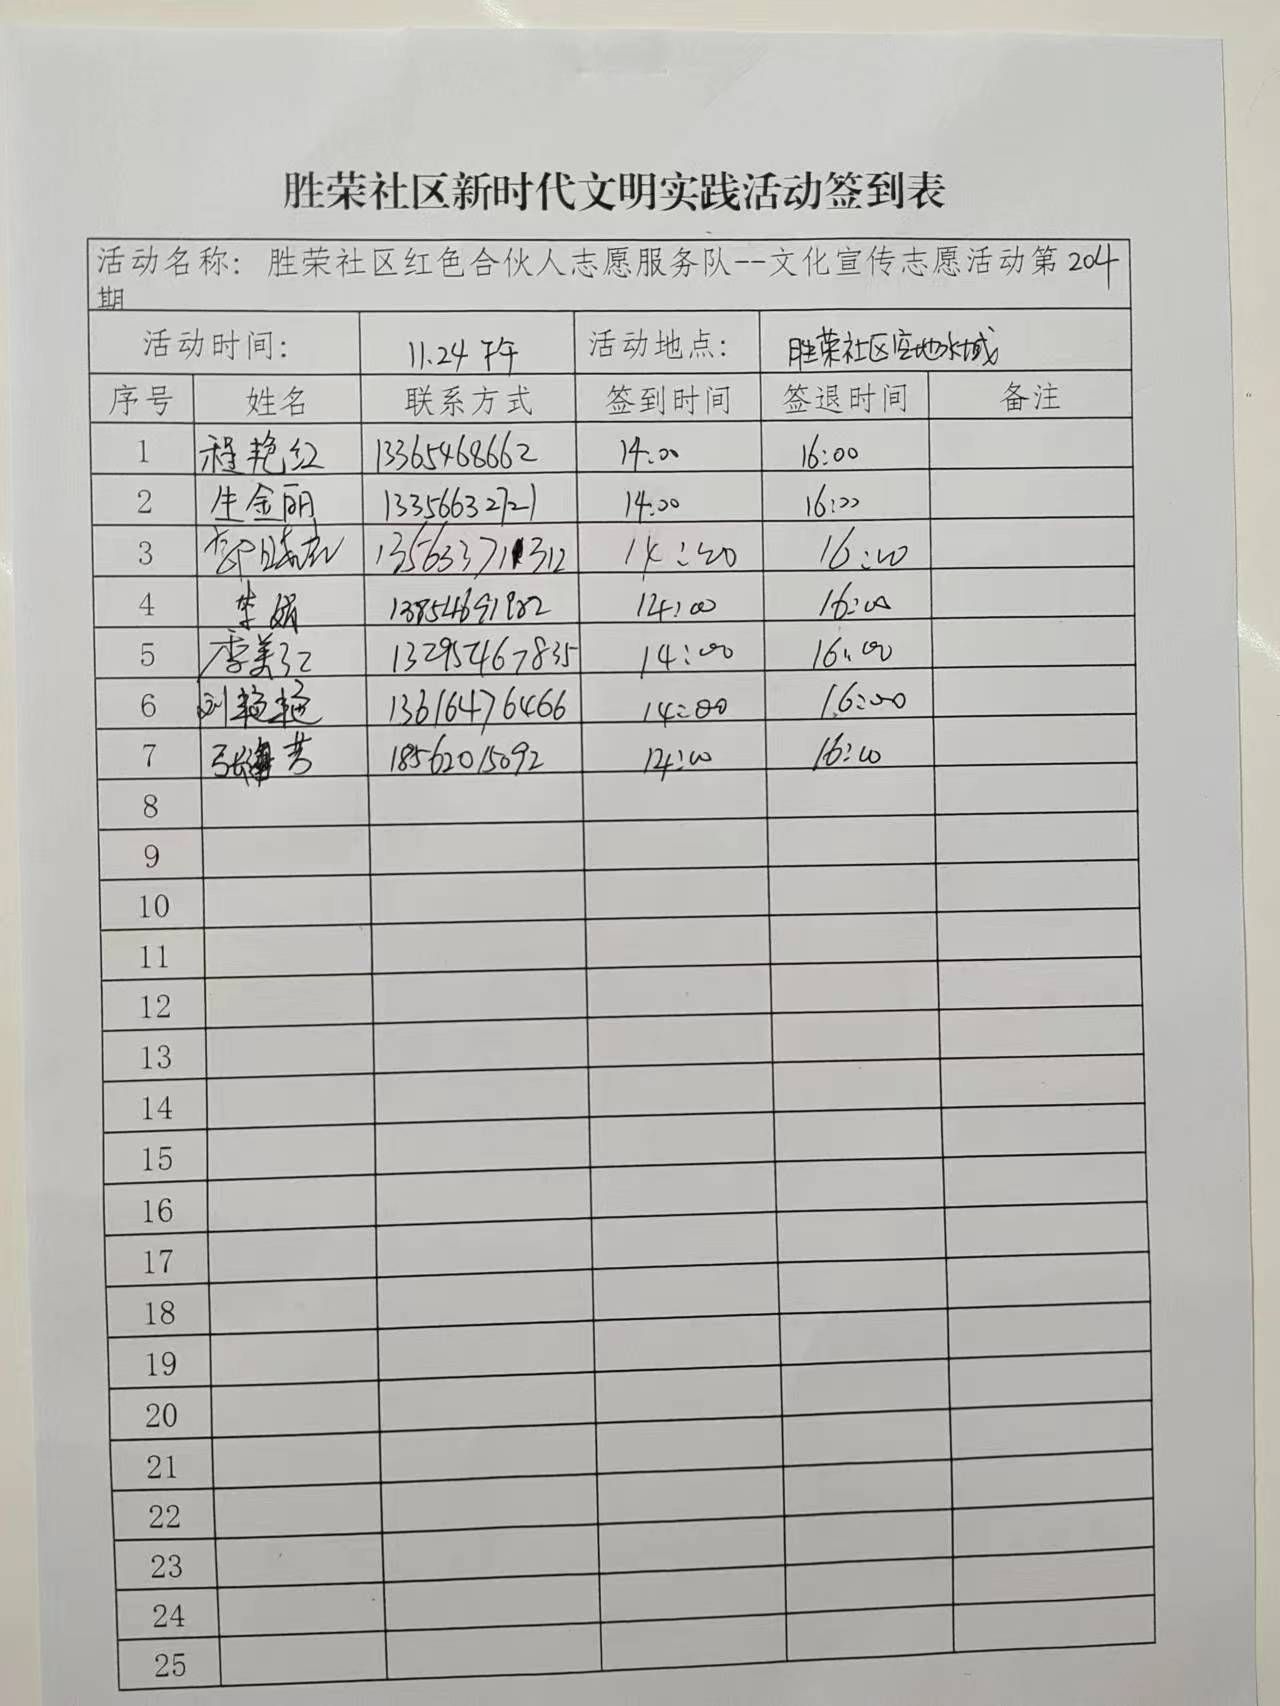 胜荣社区新时代文明实践活动签到表
活动名称：胜荣社区红色合伙人志愿服务队--文化宣传志愿活动第204
期
活动时间： 11.24 下午 活动地点： 胜荣社区空地水城
序号 姓名 联系方式 签到时间 签退时间 备注
1 程艳红 13365468662 14:00 16:00
2 生金丽 13356632721 14:00 16:00
3 14:00 16:00
4 李娟 13854691982 14:00 16:00
5 李美江 13295467835 14:00 16:00
6 刘艳艳 13616476466 14:00 16:00
7 张海芳 18562015092 14:00 16:00
8
9
10
11
12
13
14
15
16
17
18
19
20
21
22
23
24
25